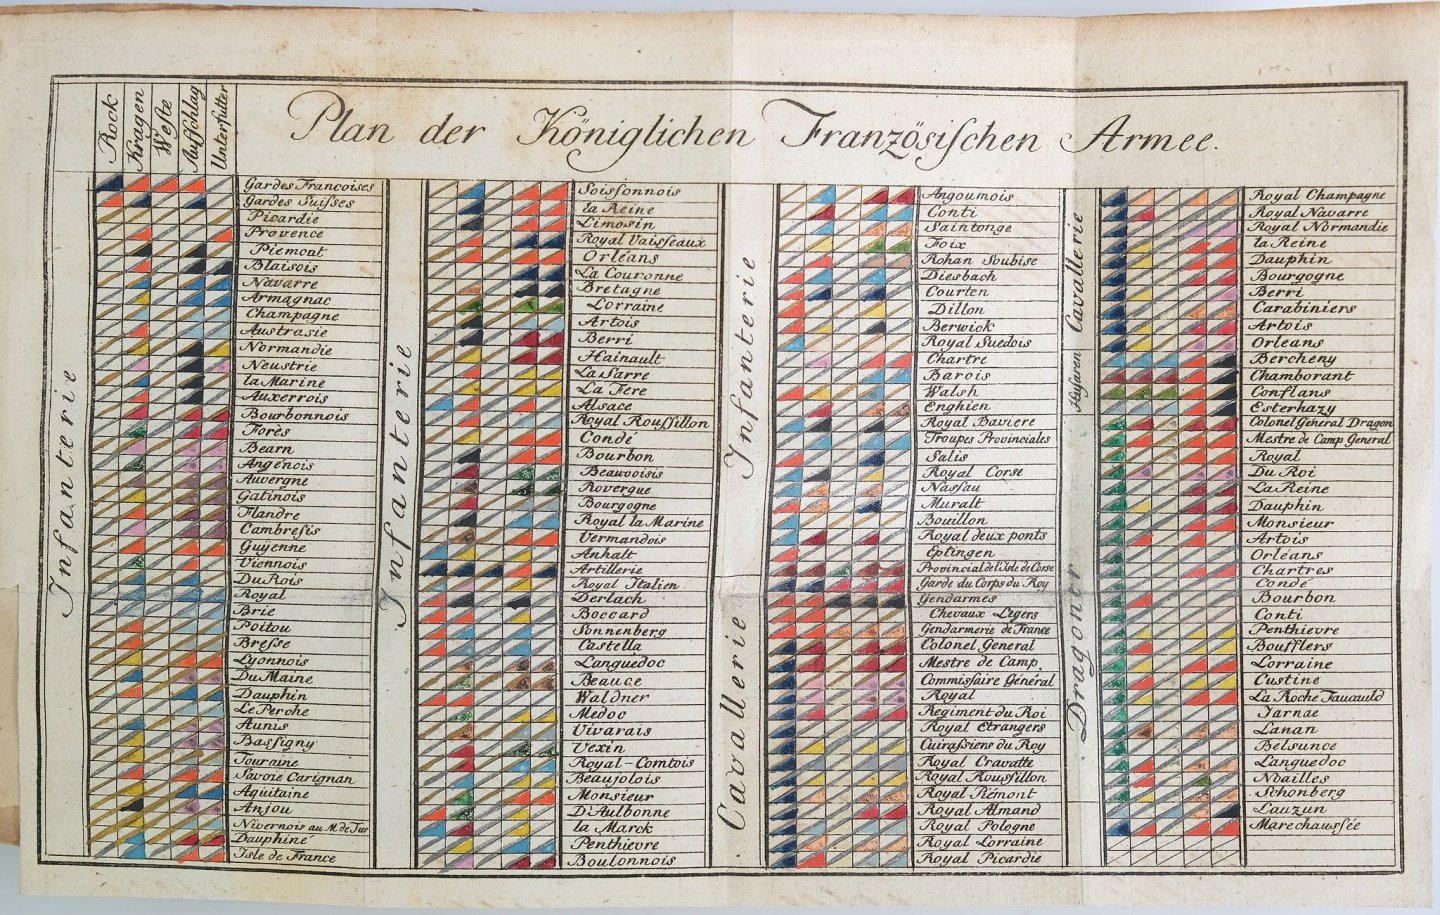 Plan der Königlichen Französischen Armee.
Rock
Kragen
Weste
Aufschlag
Unterfutter
Infanterie
Gardes Francoises
Gardes Suisses
Picardie
Provence
Piemont
Blaisois
Navarre
Armagnac
Champagne
Austrasie
Normandie
Neustrie
la Marine
Auxerrois
Bourbonnois
Forès
Bearn
Angenois
Auvergne
Gatinois
Flandre
Cambresis
Guyenne
Viennois
Du Rois
Royal
Brie
Poitou
Bresse
Lyonnois
Du Maine
Dauphin
Le Perche
Aunis
Bassigny
Touraine
Savoie Carignan
Aquitaine
Anjou
Nivernois au M. de Tur
Dauphine
Isle de France
Infanterie
Soissonnois
la Reine
Limosin
Royal Vaisseaux
Orleans
La Couronne
Bretagne
Lorraine
Artois
Berri
Hainault
La Sarre
La Fere
Alsace
Royal Roussillon
Condé
Bourbon
Beauvoisis
Rovergue
Bourgogne
Royal la Marine
Vermandois
Anhalt
Artillerie
Royal Italien
Derlach
Boccard
Sonnenberg
Castella
Languedoc
Beauce
Waldner
Medoc
Vivarais
Vexin
Royal-Comtois
Beaujolois
Monsieur
D'Aulbonne
la Marck
Penthievre
Boulonnois
Infanterie
Angoumois
Conti
Saintonge
Foix
Rohan Soubise
Diesbach
Courten
Dillon
Berwick
Royal Suedois
Chartre
Barois
Walsh
Enghien
Royal Baviere
Troupes Provinciales
Salis
Royal Corse
Nassau
Muralt
Bouillon
Royal deux ponts
Eptingen
Provincial de l'Isle de Corse
Cavallerie
Garde du Corps du Roy
Gendarmes
Chevaux Legers
Gendarmerie de France
Colonel General
Mestre de Camp.
Commissaire General
Royal
Regiment du Roi
Royal Etrangers
Cuirassiers du Roy
Royal Cravatte
Royal Roussillon
Royal Piémont
Royal Almand
Royal Pologne
Royal Lorraine
Royal Picardie
Cavallerie
Royal Champagne
Royal Navarre
Royal Normandie
la Reine
Dauphin
Bourgogne
Berri
Carabiniers
Artois
Orleans
Husaren
Bercheny
Chamborant
Conflans
Esterhazy
Dragoner
Colonel General Dragon
Mestre de Camp General
Royal
Du Roi
La Reine
Dauphin
Monsieur
Artois
Orleans
Chartres
Condé
Bourbon
Conti
Penthievre
Boufflers
Lorraine
Custine
La Roche Faucauld
Jarnae
Lanan
Belsunce
Languedoc
Noailles
Schonberg
Lauzun
Marechaussée